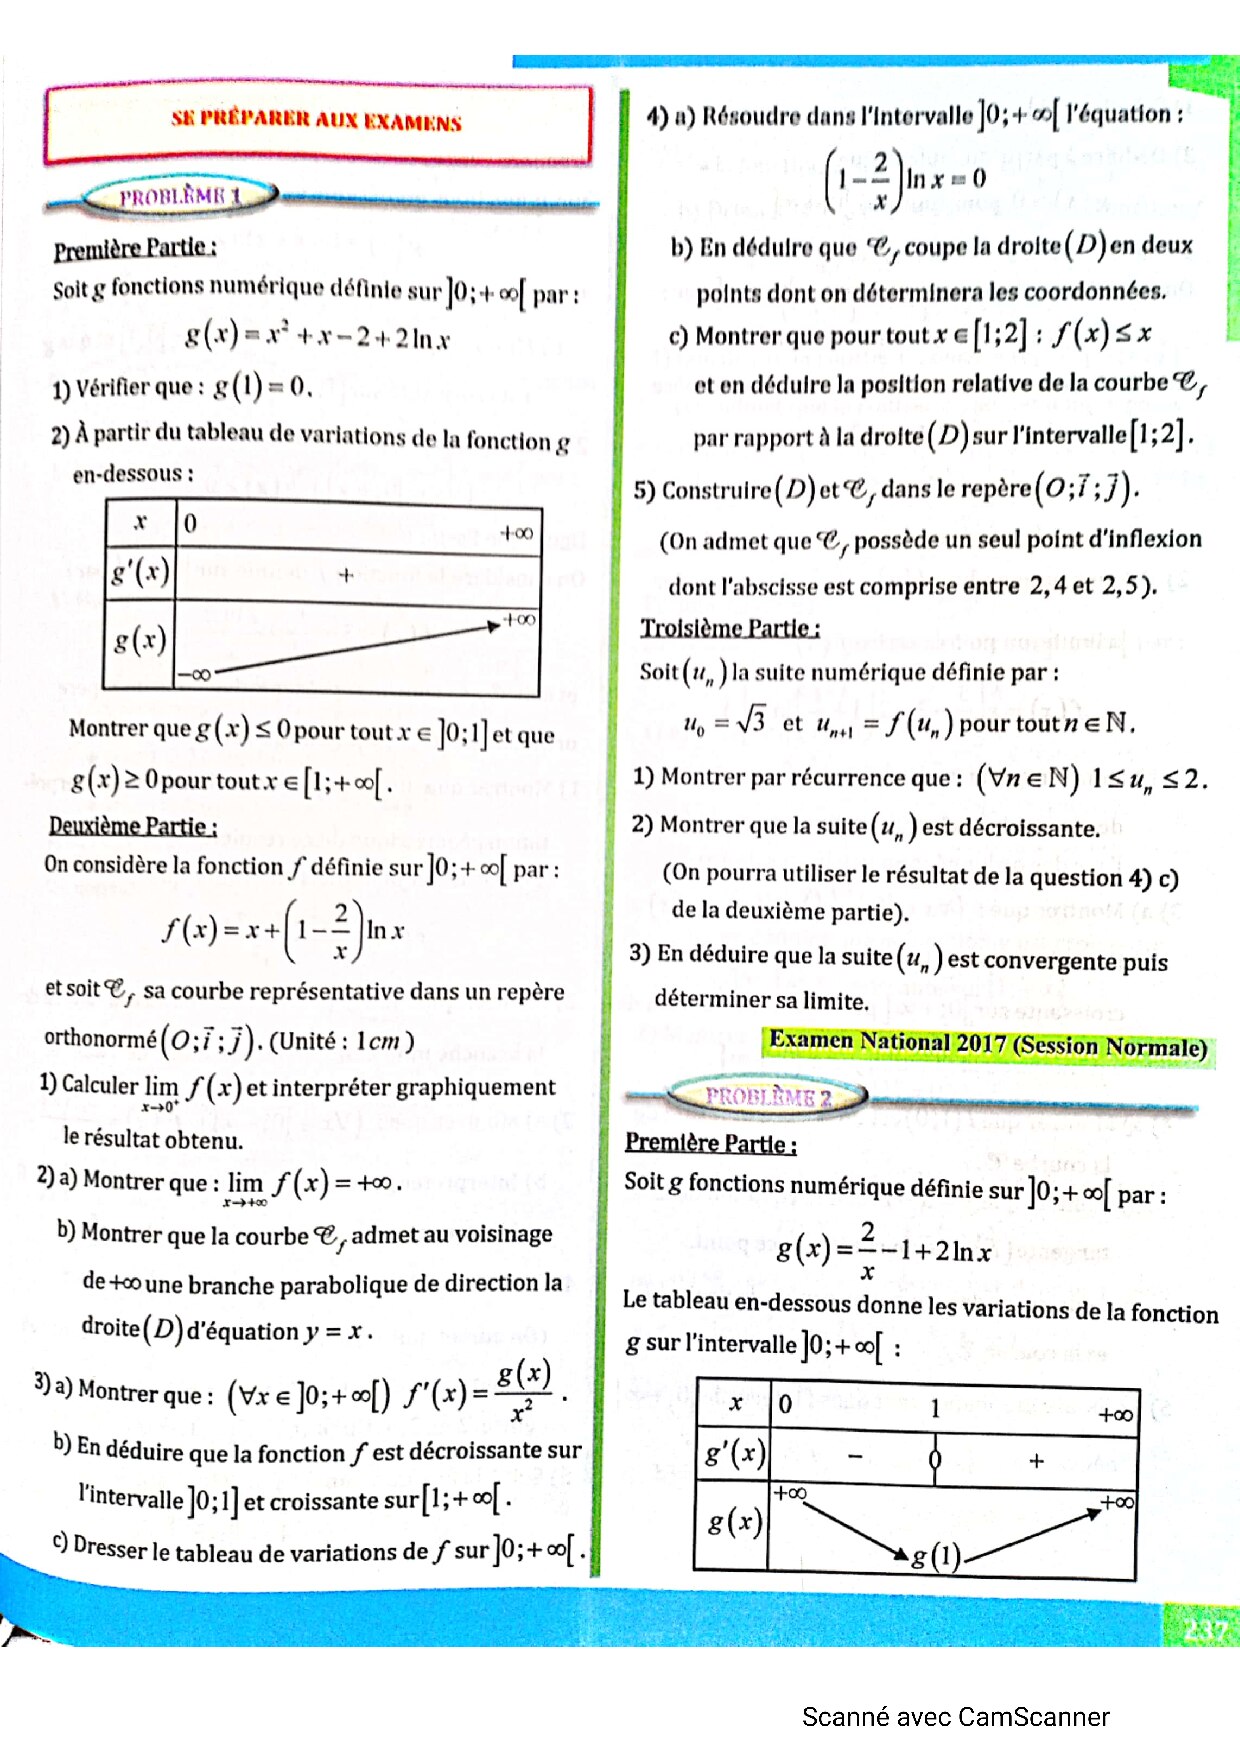 SE PRÉPARER AUX EXAMENS
PROBLÈME 1
Première Partie :
Soit g fonctions numérique définie sur ]0;+∞[ par :
g(x) = x² + x − 2 + 2 ln x
1) Vérifier que : g(1) = 0.
2) À partir du tableau de variations de la fonction g
en-dessous :
x 0 +∞
g'(x) +
g(x) −∞ +∞
Montrer que g(x) ≤ 0 pour tout x ∈ ]0;1] et que
g(x) ≥ 0 pour tout x ∈ [1;+∞[ .
Deuxième Partie :
On considère la fonction f définie sur ]0;+∞[ par :
f(x) = x + (1 − 2/x) ln x
et soit 𝒞f sa courbe représentative dans un repère
orthonormé (O; i⃗ ; j⃗). (Unité : 1cm )
1) Calculer lim x→0⁺ f(x) et interpréter graphiquement
le résultat obtenu.
2) a) Montrer que : lim x→+∞ f(x) = +∞ .
b) Montrer que la courbe 𝒞f admet au voisinage
de +∞ une branche parabolique de direction la
droite (D) d'équation y = x .
3) a) Montrer que : (∀x ∈ ]0;+∞[) f'(x) = g(x)/x² .
b) En déduire que la fonction f est décroissante sur
l'intervalle ]0;1] et croissante sur [1;+∞[ .
c) Dresser le tableau de variations de f sur ]0;+∞[ .
4) a) Résoudre dans l'intervalle ]0;+∞[ l'équation :
(1 − 2/x) ln x = 0
b) En déduire que 𝒞f coupe la droite (D) en deux
points dont on déterminera les coordonnées.
c) Montrer que pour tout x ∈ [1;2] : f(x) ≤ x
et en déduire la position relative de la courbe 𝒞f
par rapport à la droite (D) sur l'intervalle [1;2] .
5) Construire (D) et 𝒞f dans le repère (O; i⃗ ; j⃗).
(On admet que 𝒞f possède un seul point d'inflexion
dont l'abscisse est comprise entre 2,4 et 2,5).
Troisième Partie :
Soit (uₙ) la suite numérique définie par :
u₀ = √3 et uₙ₊₁ = f(uₙ) pour tout n ∈ ℕ.
1) Montrer par récurrence que : (∀n ∈ ℕ) 1 ≤ uₙ ≤ 2.
2) Montrer que la suite (uₙ) est décroissante.
(On pourra utiliser le résultat de la question 4) c)
de la deuxième partie).
3) En déduire que la suite (uₙ) est convergente puis
déterminer sa limite.
Examen National 2017 (Session Normale)
PROBLÈME 2
Première Partie :
Soit g fonctions numérique définie sur ]0;+∞[ par :
g(x) = 2/x − 1 + 2 ln x
Le tableau en-dessous donne les variations de la fonction
g sur l'intervalle ]0;+∞[ :
x 0 1 +∞
g'(x) − 0 +
g(x) +∞ g(1) +∞
237
Scanné avec CamScanner